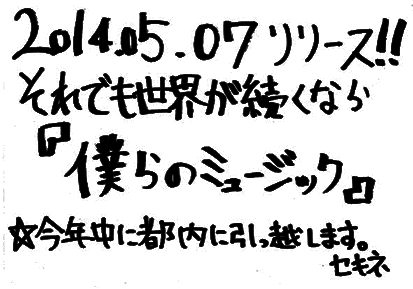 2014.05.07リリース!!
それでも世界が続くなら
『僕らのミュージック』
☆今年中に都内に引っ越します。
セキネ